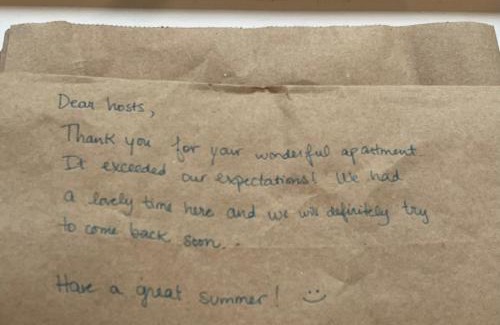 Dear hosts,
Thank you for your wonderful apartment.
It exceeded our expectations! We had
a lovely time here and we will definitely try
to come back soon..
Have a great summer! :)